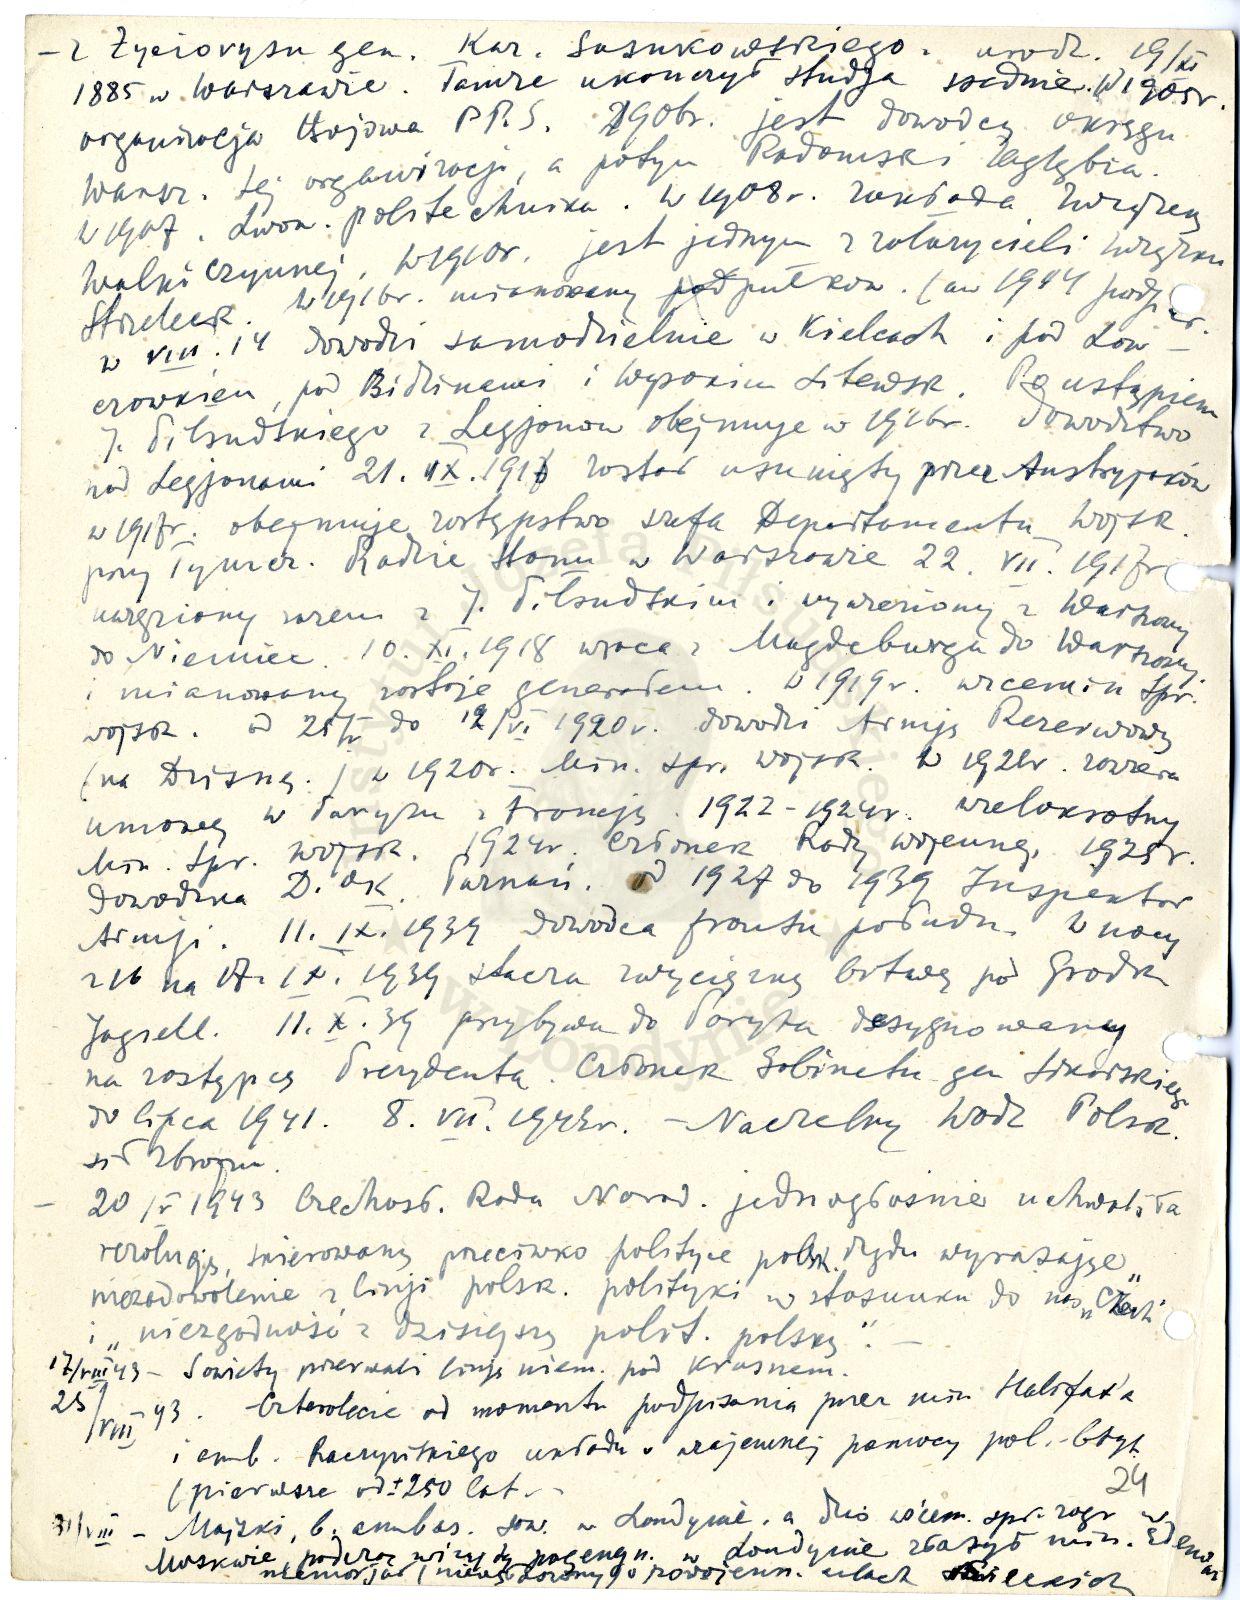 — z Życiorysu gen. Kaz. Sosnkowskiego. urodz. 19/XI
1885 w Warszawie. Tamże ukończył studja średnie. W 1905 r.
organizacja Bojowa P.P.S. 1906 r. jest dowódcą okręgu
Warsz. tej organizacji, a potym Radomski i Zagłębia.
W 1907. Lwow. politechnika. W 1908 r. zakłada Związek
Walki Czynnej. W 1910 r. jest jednym z założycieli Związku
Strzeleck. W 1916 r. mianowany pułkow. (a w 1914 podp
w VIII.14 dowodzi samodzielnie w Kielcach i pod Łow-
czowkiem, pod i Wysokim Litewsk. Po ustąpieniu
J. Piłsudskiego z Legjonów obejmuje w 1916 r. Dowództwo
nad Legjonami 21. IX. 1917 został usunięty przez Austryjaków
w 1917 r. obejmuje zastępstwo szefa Departamentu Wojsk.
przy Tymcz. Radzie Stanu w Warszawie 22. VII. 1917 r.
uwięziony wraz z J. Piłsudskim i wywieziony z Warszawy
do Niemiec. 10. XI. 1918 wraca z Magdeburga do Warszawy
i mianowany zostaje generałem. W 1919 r. wicemin Spr.
wojsk. od 25/V do 12/VI 1920 r. dowodzi Armją Rezerwową
(na Dzisną.) w 1920 r. Min. spr. wojsk. W 1921 r. zawiera
umowę w Paryżu z Francją. 1922-1924 r. wielokrotny
Min. Spr. Wojsk. 1924 r. członek Rady wojennej, 1925 r.
Dowódzca D. OK. Poznań. od 1927 do 1939 Inspektor
Armji. 11. IX. 1939 dowódca frontu połudn. W nocy
z 16 na 17. IX. 1939 stacza zwycięzną bitwę pod Grodk
Jagiell. 11. X. 39 przybywa do Paryża desygnowany
na zastępcę Prezydenta. Członek Gabinetu gen Sikorskiego
do lipca 1941. 8. VII. 1943 r. — Naczelny Wódz Polsk.
sił zbrojn.
— 20/V 1943 Czechosł. Rada Narod. jednogłośnie uchwaliła
rezolucję, skierowaną przeciwko polityce polsk. rządu wyrażając
niezadowolenie z linji polsk. polityki w stosunku do nas „Czech”
i „niezgodność z dzisiejszą polit. polską”. —
17/VIII 43 — Sowiety przerwali linję niem. pod Krasnem.
25/VIII 43. Czterolecie od momentu podpisania przez min Halifax'a
i amb. Raczyńskiego układu o wzajemnej pomocy pol.-bryt
(pierwsze od ± 250 lat. —
24
31/VIII — Majski, b. ambas. sow. w Londynie, a dziś wicem. spr. zagr w
Moskwie, podczas wizyty pożegn. w Londynie złożył min. Edenowi
memorjał o powojenn. celach
Instytut Józefa Piłsudskiego
w Londynie